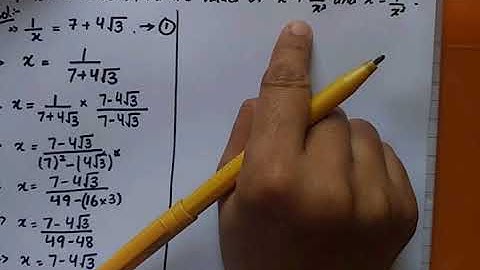 value of x² + 1/x² and x - 1/x² .
Sol:-
⇒ 1/x = 7 + 4√3 . → ①
⇒ x = 1/(7+4√3)
x = 1/(7+4√3) × (7-4√3)/(7-4√3)
x = (7-4√3)/((7)²-(4√3)²)
x = (7-4√3)/(49-(16×3))
⇒ x = (7-4√3)/(49-48)
⇒ x = 7-4√3